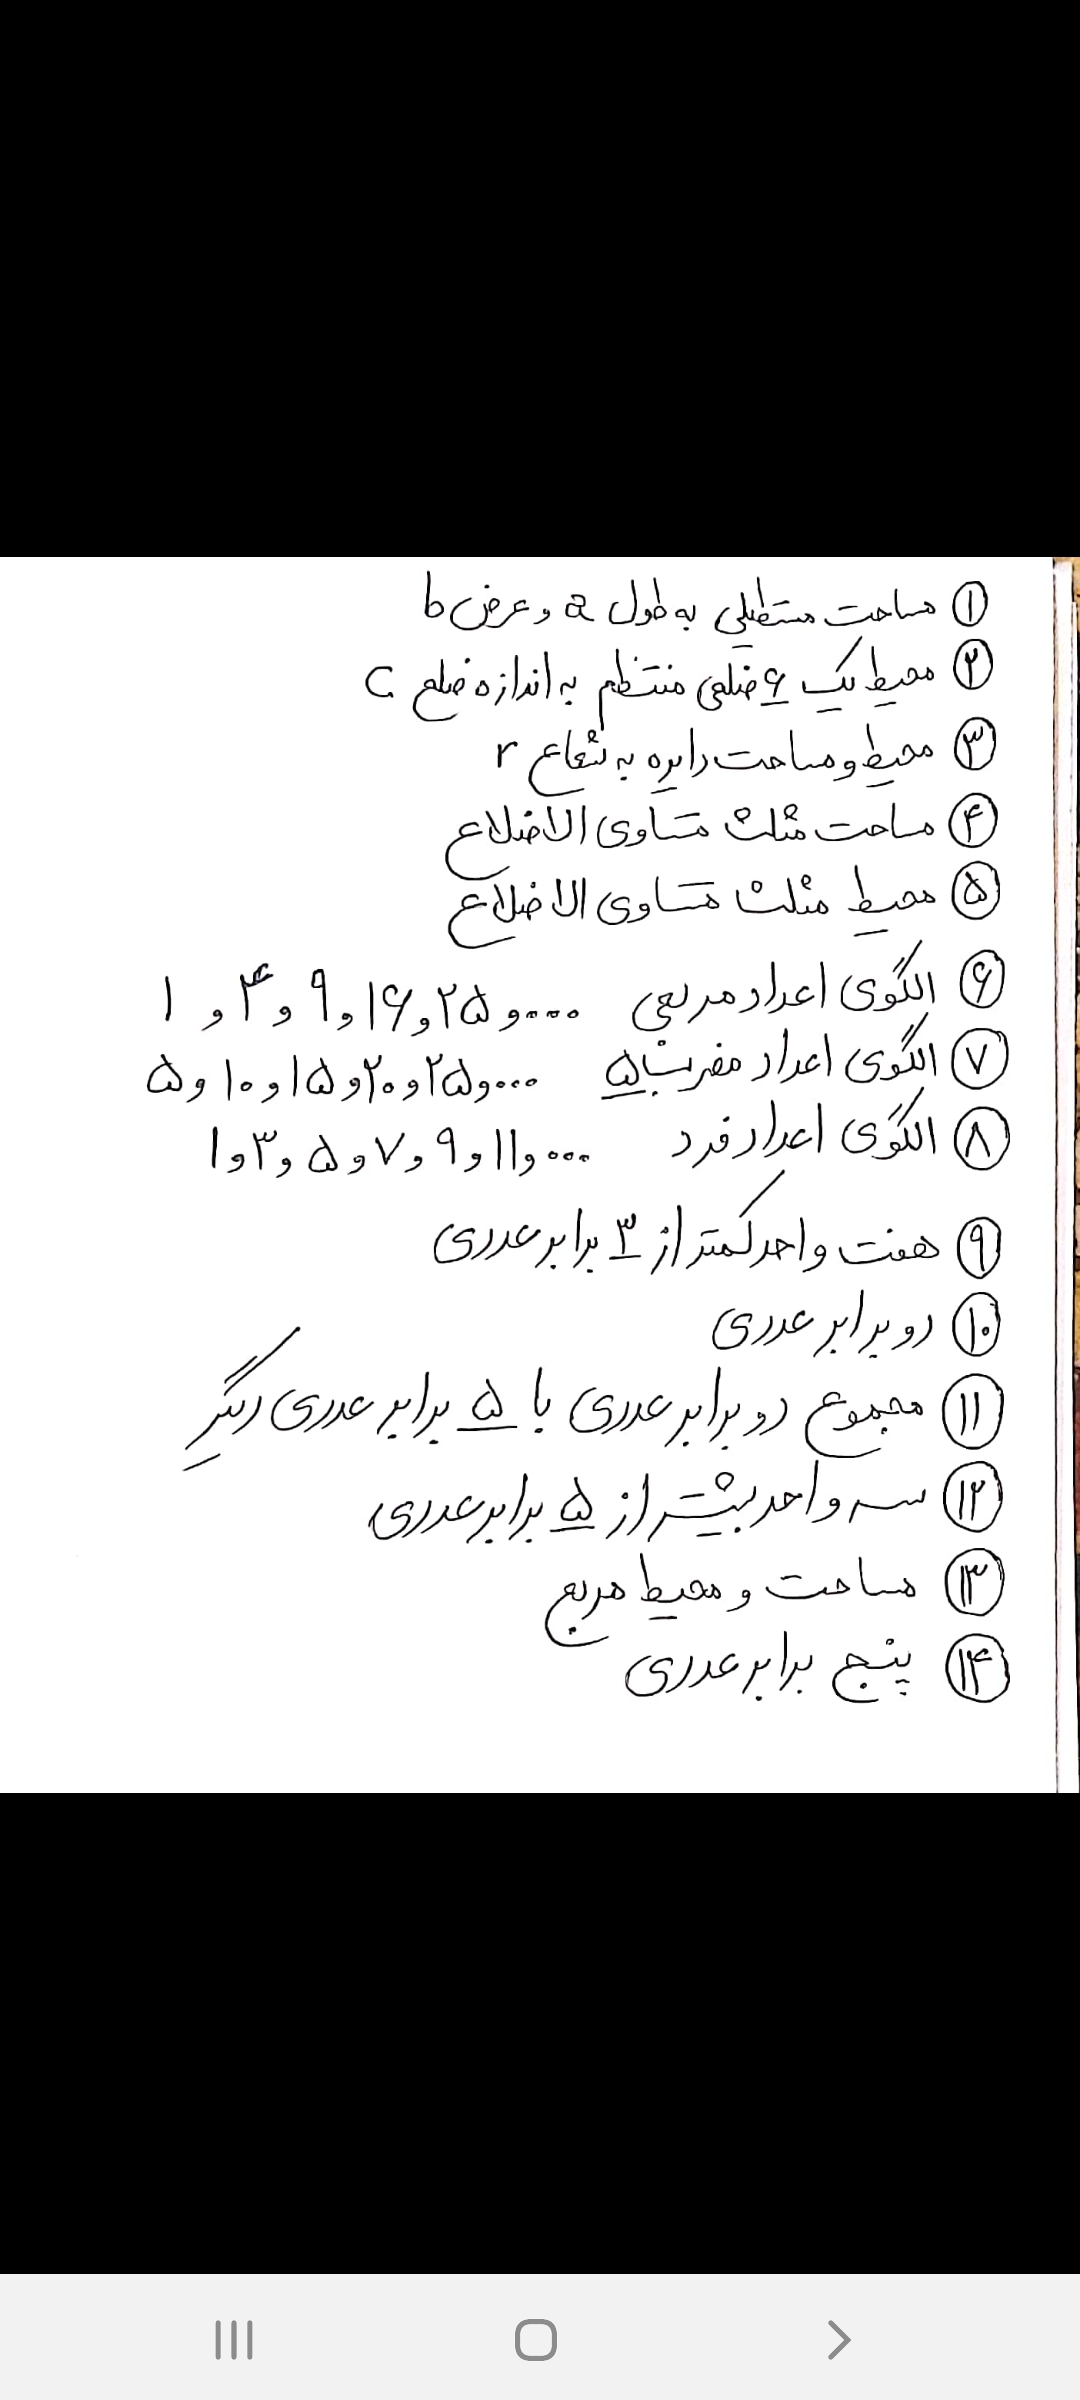 ① مساحت مستطیلی به طول a و عرض b
② محیط یک ۶ ضلعی منتظم به اندازه ضلع C
③ محیط و مساحت دایره به شعاع r
④ مساحت مثلث متساوی الاضلاع
⑤ محیط مثلث متساوی الاضلاع
⑥ الگوی اعداد مربعی ۱ و ۴ و ۹ و ۱۶ و ۲۵ و ....
⑦ الگوی اعداد مضرب ۵ ۵ و ۱۰ و ۱۵ و ۲۰ و ۲۵ و ....
⑧ الگوی اعداد فرد ۱ و ۳ و ۵ و ۷ و ۹ و ۱۱ و ...
⑨ هفت واحد کمتر از ۳ برابر عددی
⑩ دو برابر عددی
⑪ مجموع دو برابر عددی با ۵ برابر عددی دیگر
⑫ سه واحد بیشتر از ۵ برابر عددی
⑬ مساحت و محیط مربع
⑭ پنج برابر عددی